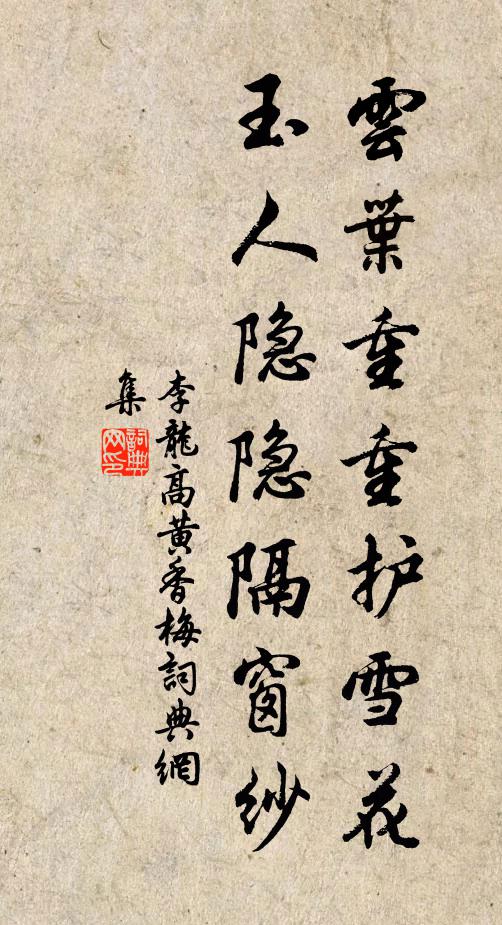 雲葉重重护雪花
玉人隐隐隔窗纱
李龍高黄香梅詞典網
集
詞典網印